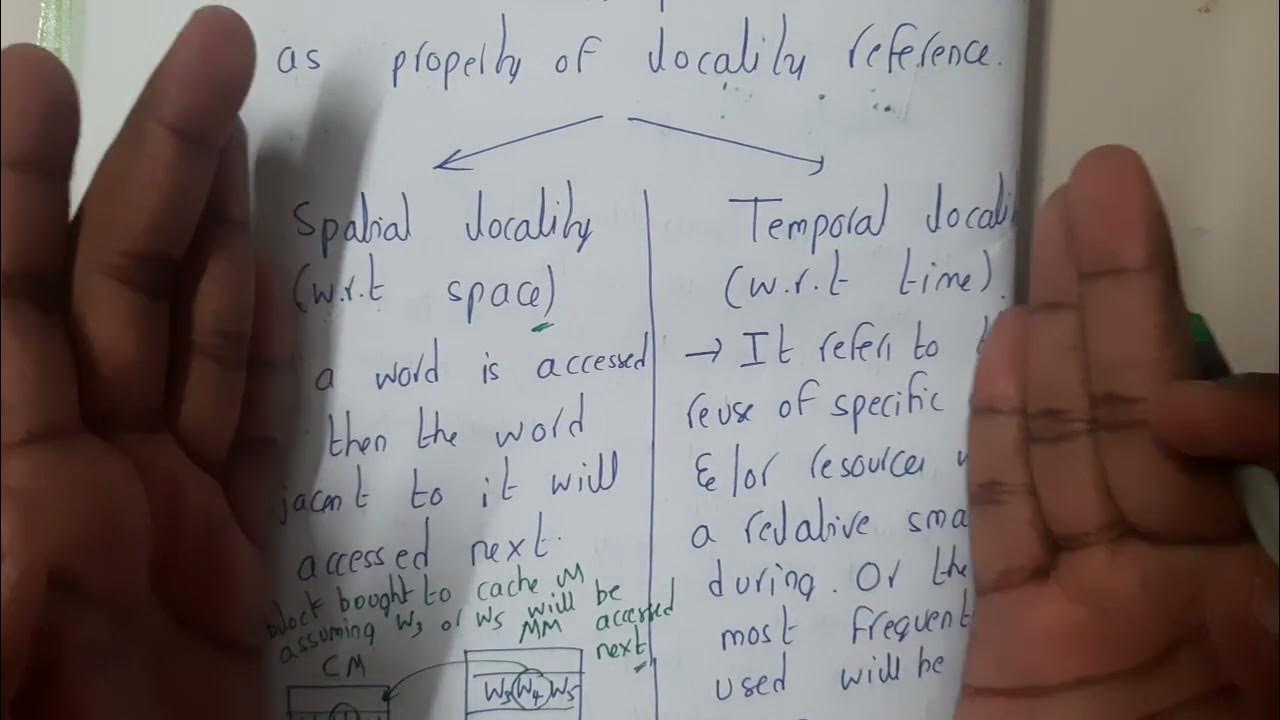 as property of locality reference.
Spatial locality
(w.r.t space)
a word is accessed
then the word
jacent to it will
accessed next.
block bought to cache M
assuming W3 or W5 will be
accessed
next
CM
MM
W3 W4 W5
Temporal locali
(w.r.t time).
→ It refers to
reuse of specific
&/or resources
a relative sma
during. Or the
most frequent
used will be